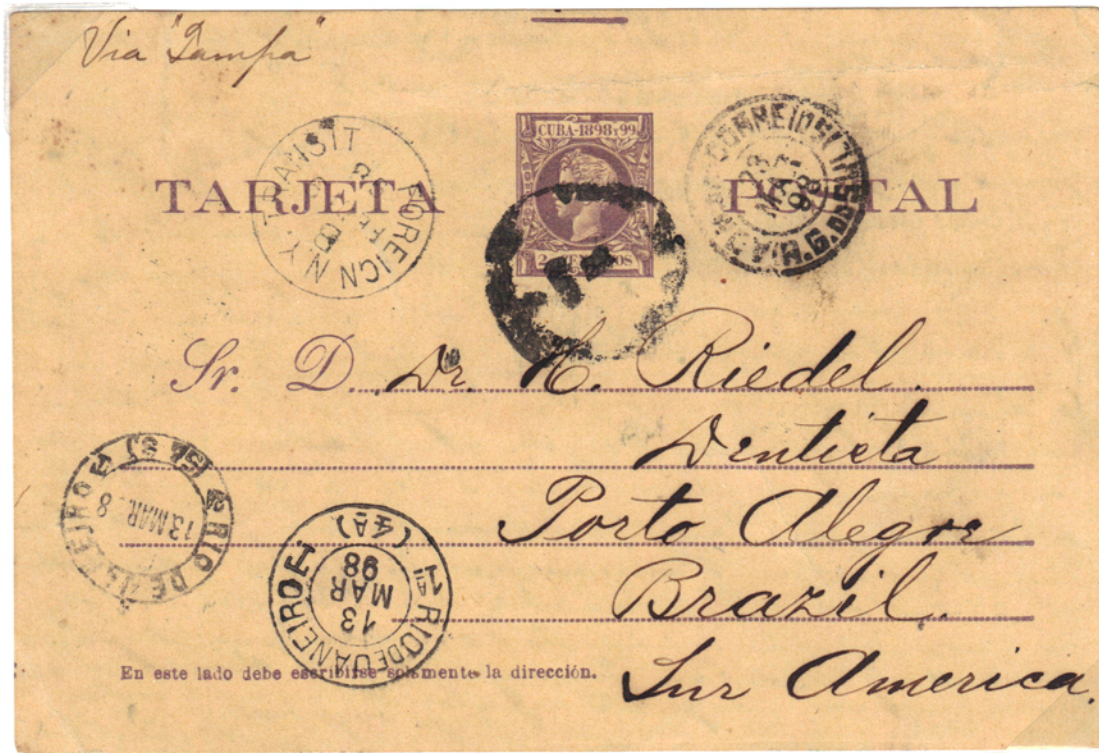 Via "Tampa"
CUBA-1898 Y 99
TARJETA POSTAL
FOREIGN N.Y. TRANSIT
CORREIOS
23
MAR
98
Sr. D. Dr. H. Riedel.
Dentista
Porto Alegre
Brazil.
Sur America.
RIO DE JANEIRO
13 MAR. 8
1ª RIO DE JANEIRO
13
MAR
98
(4ª)
En este lado debe escribirse solamente la dirección.